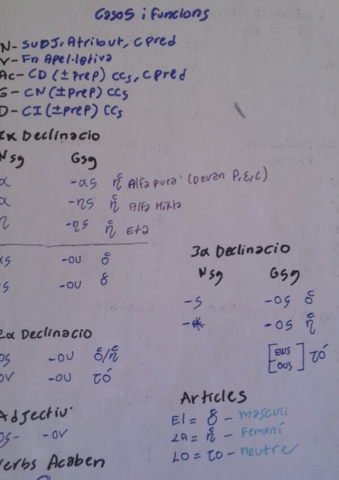 Casos i Funcions
N- SUBJ, Atribut, C pred
V- Fn Apel·lativa
Ac- CD (±prep) CCs, C pred
G- CN (±prep) CCs
D- CI (±prep) CCs
1a Declinacio
Nsg Gsg
α -ας ἡ Alfa pura (Devan P, E, C)
α -ης ἡ Alfa Mixta
η -ης ἡ Eta
ας -ου ὁ
ης -ου ὁ
2a Declinacio
ος -ου ὁ/ἡ
ον -ου τό
3a Declinacio
Nsg Gsg
-ς -ος ὁ
-* -ος ἡ
[εως ους] τό
Adjectiu
ος- -ον
Verbs Acaben
Articles
El = ὁ - masculí
LA = ἡ - Femení
LO = το - neutre